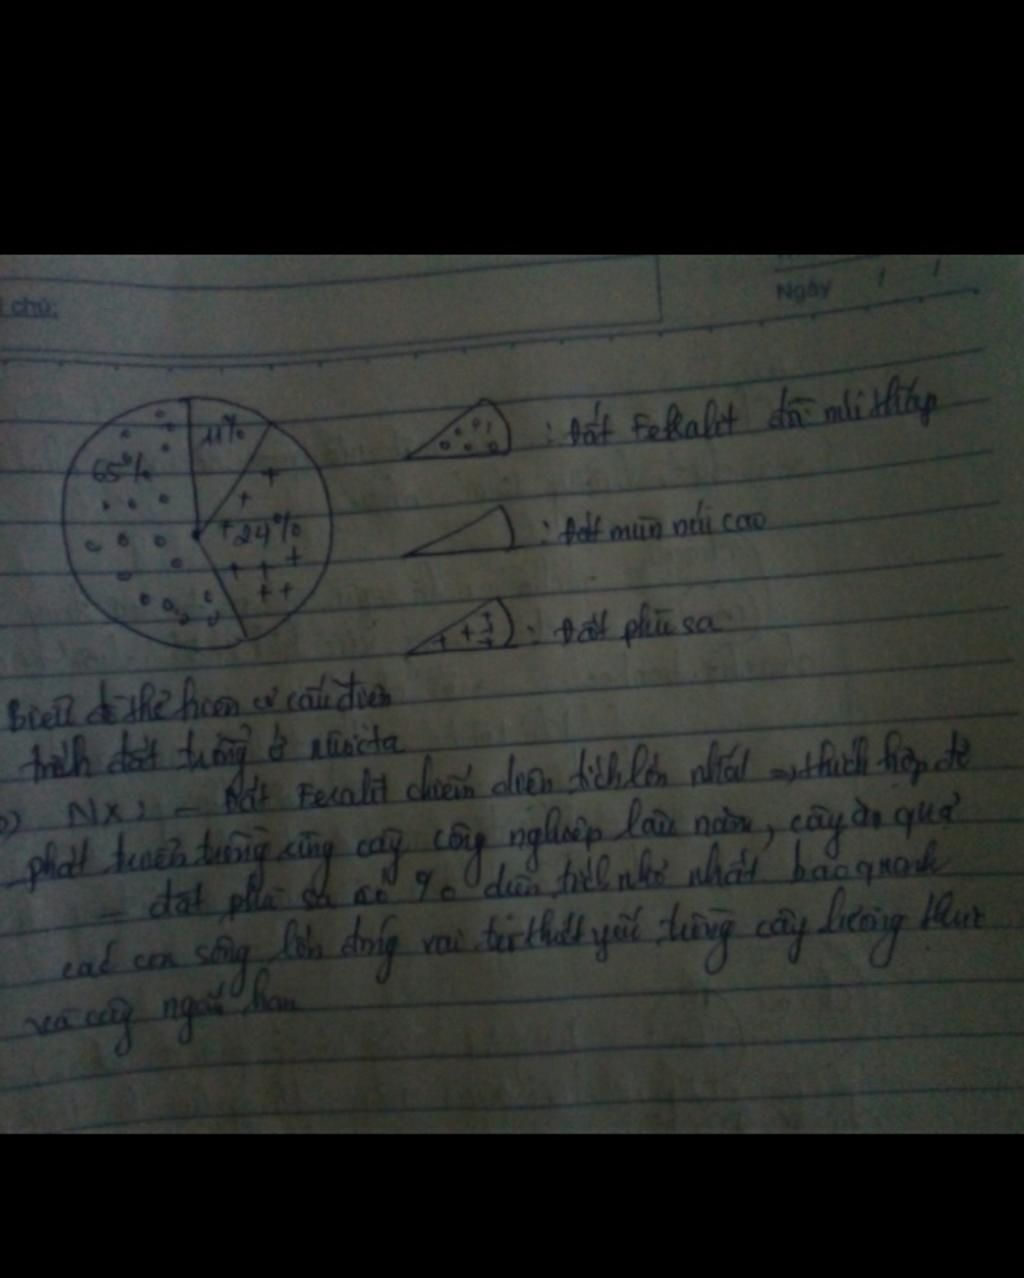 chú:
Ngày / /
11%
65%
24%
: Đất Feralit đồi núi thấp
: Đất mùn núi cao
: Đất phù sa
Biểu đồ thể hiện cơ cấu diện
tích đất trồng ở nước ta
b) NX: - Đất Feralit chiếm diện tích lớn nhất => thích hợp để
phát triển trồng cây công nghiệp lâu năm, cây ăn quả
- đất phù sa có % diện tích nhỏ nhất bao quanh
các con sông lớn đóng vai trò yếu trồng cây lương thực
và cây ngắn hạn